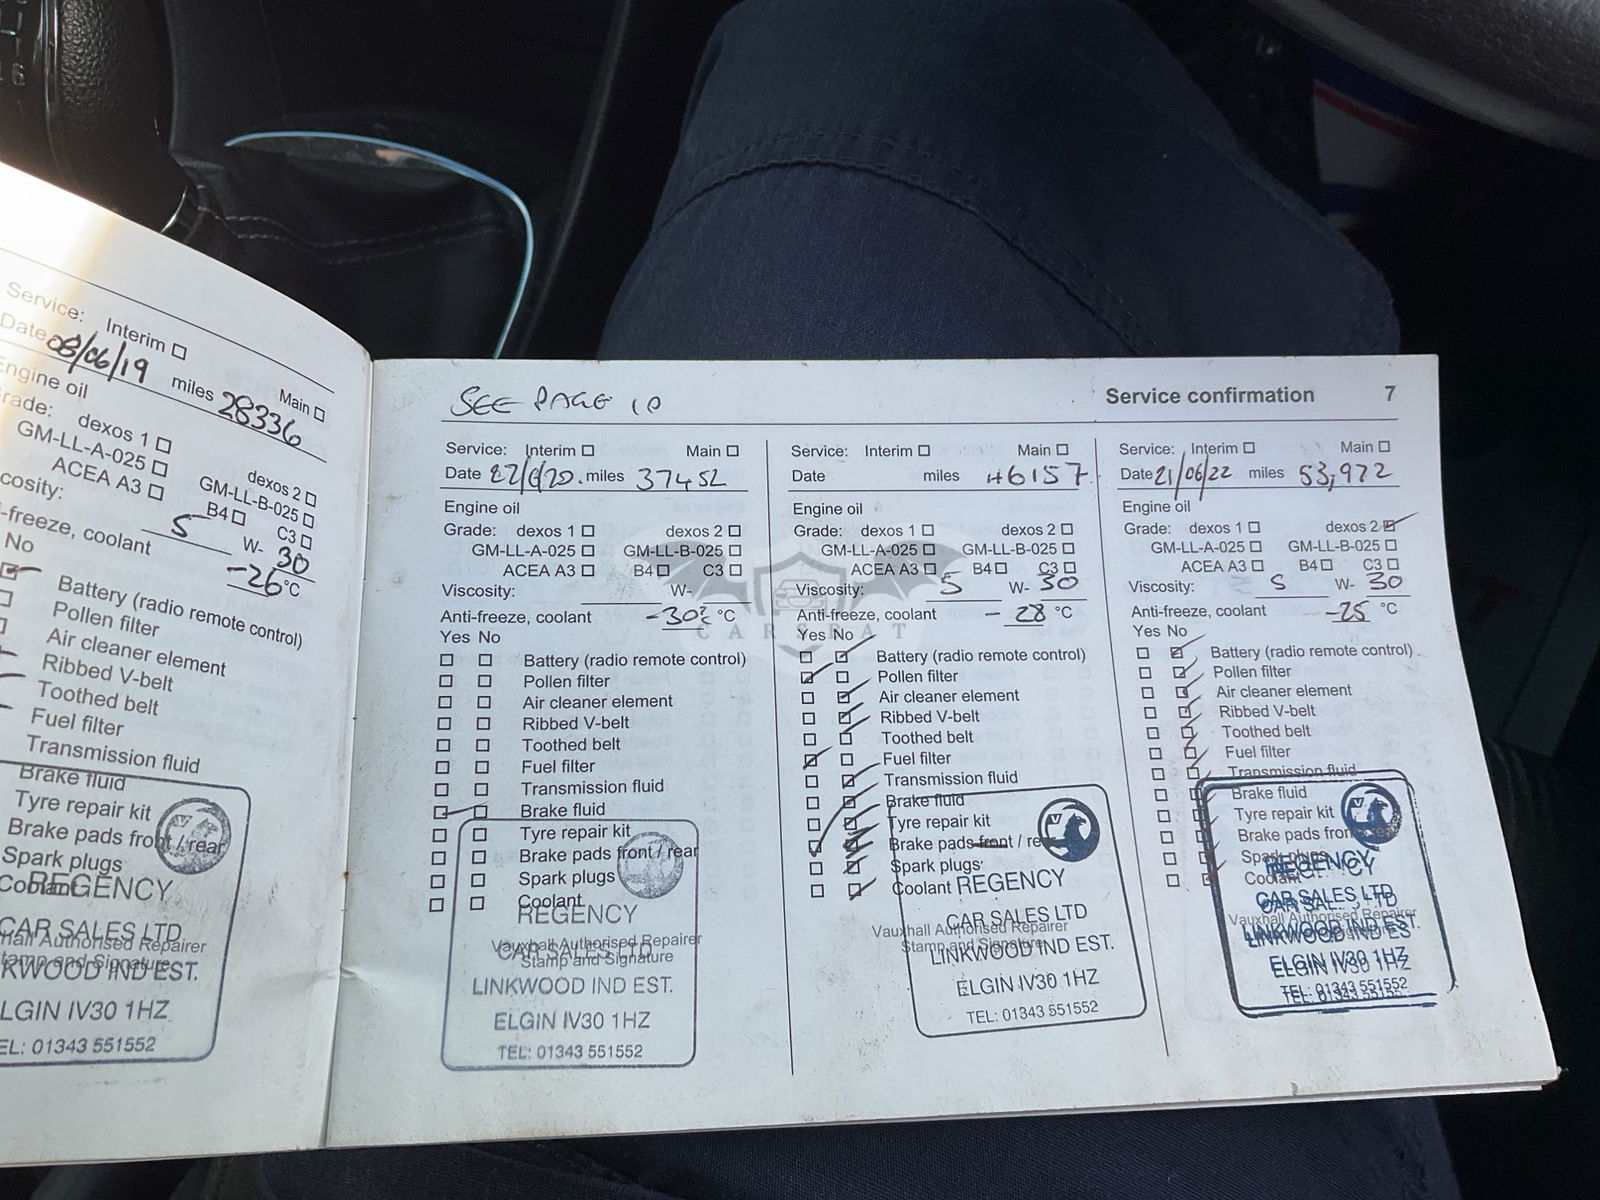 Service: Interim
Date 08/06/19 miles 28336 Main
Engine oil
Grade: dexos 1 dexos 2
GM-LL-A-025 GM-LL-B-025
ACEA A3 B4 C3
cosity: 5 W- 30
-freeze, coolant -26 °C
No
Battery (radio remote control)
Pollen filter
Air cleaner element
Ribbed V-belt
Toothed belt
Fuel filter
Transmission fluid
Brake fluid
Tyre repair kit
Brake pads front / rear
Spark plugs
Coolant
REGENCY
CAR SALES LTD
hall Authorised Repairer
tamp and Signature
KWOOD IND EST.
ELGIN IV30 1HZ
EL: 01343 551552
SEE PAGE 10
Service confirmation 7
Service: Interim Main
Date miles 37452
Engine oil
Grade: dexos 1 dexos 2
GM-LL-A-025 GM-LL-B-025
ACEA A3 B4 C3
Viscosity: W-
Anti-freeze, coolant -30 °C
Yes No
Battery (radio remote control)
Pollen filter
Air cleaner element
Ribbed V-belt
Toothed belt
Fuel filter
Transmission fluid
Brake fluid
Tyre repair kit
Brake pads front / rear
Spark plugs
Coolant
REGENCY
Vauxhall Authorised Repairer
CAR SALES LTD
Stamp and Signature
LINKWOOD IND EST.
ELGIN IV30 1HZ
TEL: 01343 551552
Service: Interim Main
Date miles 46157
Engine oil
Grade: dexos 1 dexos 2
GM-LL-A-025 GM-LL-B-025
ACEA A3 B4 C3
Viscosity: 5 W- 30
Anti-freeze, coolant -28 °C
Yes No
Battery (radio remote control)
Pollen filter
Air cleaner element
Ribbed V-belt
Toothed belt
Fuel filter
Transmission fluid
Brake fluid
Tyre repair kit
Brake pads front / rear
Spark plugs
Coolant
REGENCY
CAR SALES LTD
Vauxhall Authorised Repairer
Stamp and Signature
LINKWOOD IND EST.
ELGIN IV30 1HZ
TEL: 01343 551552
Service: Interim Main
Date 21/06/22 miles 53,972
Engine oil
Grade: dexos 1 dexos 2
GM-LL-A-025 GM-LL-B-025
ACEA A3 B4 C3
Viscosity: 5 W- 30
Anti-freeze, coolant -25 °C
Yes No
Battery (radio remote control)
Pollen filter
Air cleaner element
Ribbed V-belt
Toothed belt
Fuel filter
Transmission fluid
Brake fluid
Tyre repair kit
Brake pads front / rear
Spark plugs
Coolant
REGENCY
CAR SALES LTD
Vauxhall Authorised Repairer
LINKWOOD IND EST
ELGIN IV30 1HZ
TEL: 01343 551552
CARSBAT